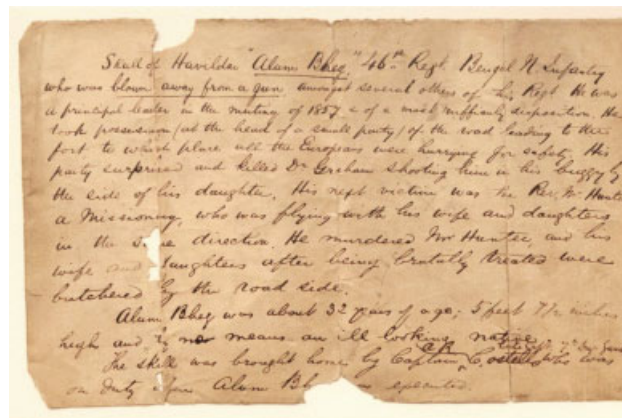 Skull of Havildar "Alum Bheg," 46th Regt. Bengal N. Infantry
who was blown away from a gun, amongst several others of his Regt. He was
a principal leader in the mutiny of 1857 & of a most ruffianly disposition. He
took possession (at the head of a small party) of the road leading to the
fort, to which place all the Europeans were hurrying for safety. His
party surprised and killed Dr. Graham shooting him in his buggy by
the side of his daughter. His next victim was the Rev. Mr. Hunter
a Missionary, who was flying with his wife and daughters
in the same direction. He murdered Mr Hunter, and his
wife and daughters after being brutally treated were
butchered by the road side.
Alum Bheg was about 32 years of age; 5 feet 7½ inches
high and by no means an ill looking native.
The skull was brought home by Captain A.R. Costello, who was
on duty when Alum Bheg was executed.